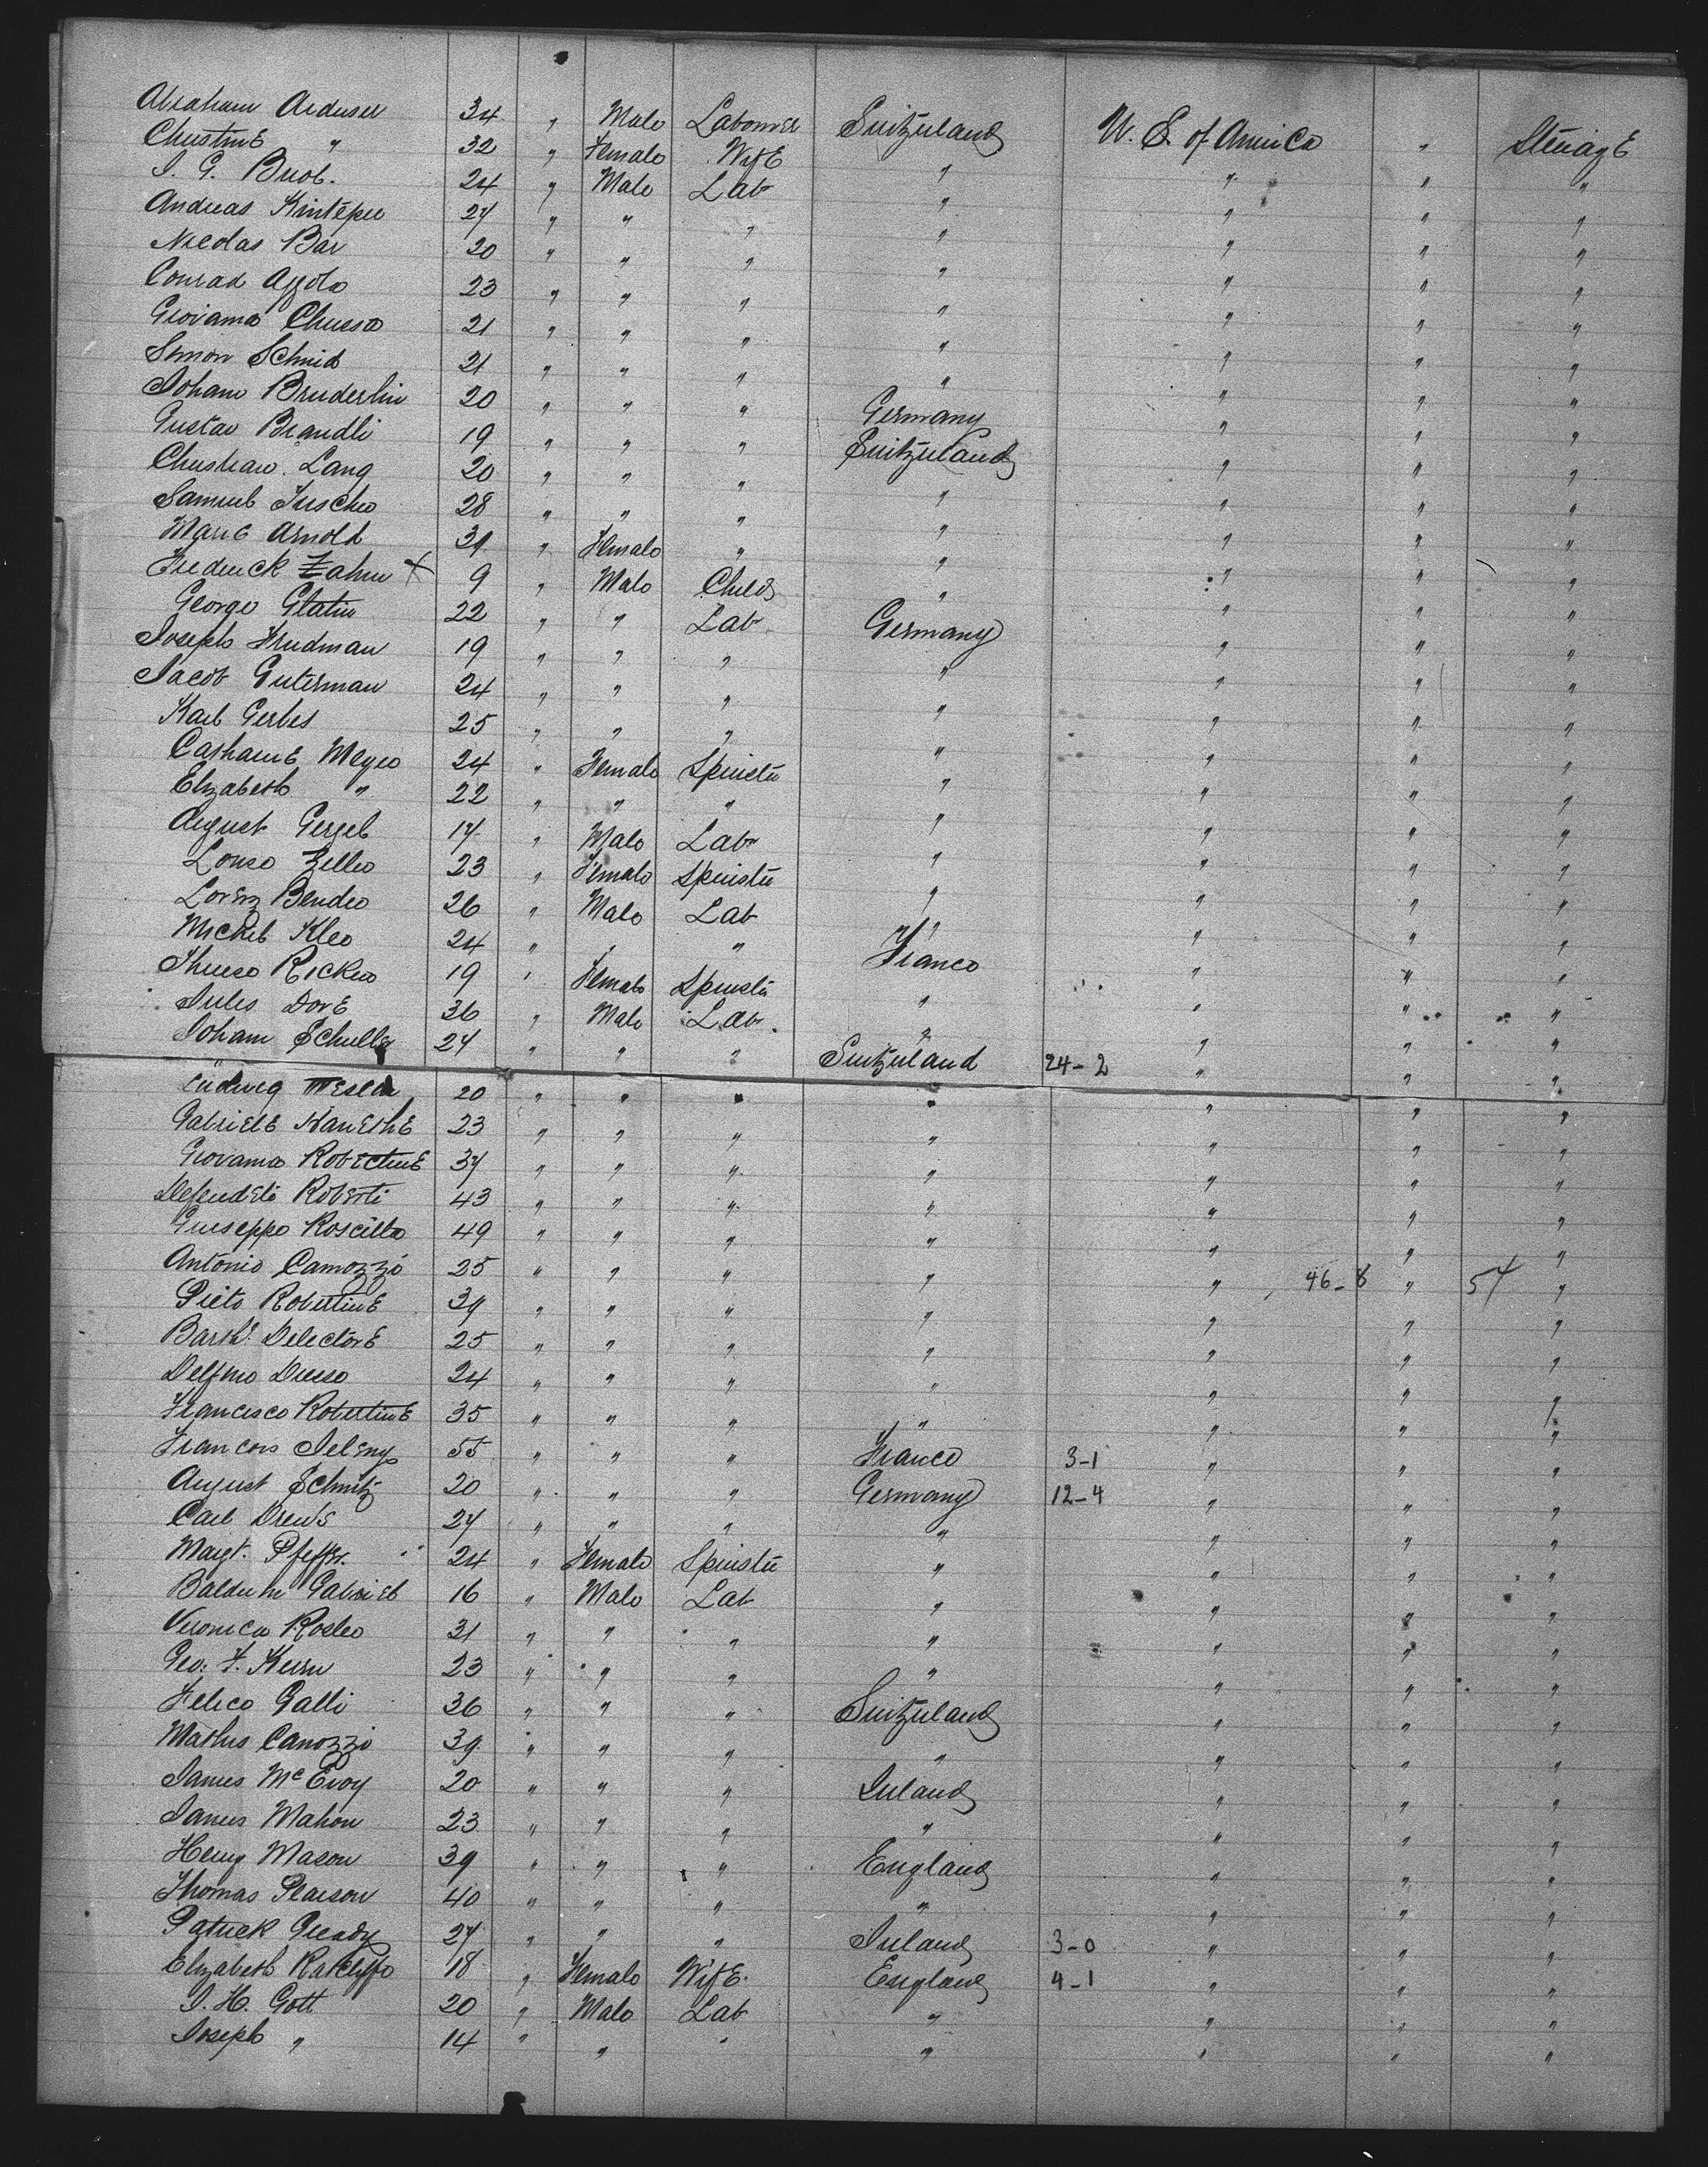 Abraham Arduser 34 " Male Labourer Switzerland U. S. of America " Steerage
Christine " 32 " Female Wife " " " "
24 " Male Lab " " " "
Andreas 27 " " " " " " "
Nicolas Bar 20 " " " " " " "
Conrad 23 " " " " " " "
Giovanna Chiesa 21 " " " " " " "
Simon Schmid 21 " " " " " " "
Johann Bruderlin 20 " " " Germany " " "
Gustav Brandli 19 " " " Switzerland " " "
Christian Lang 20 " " " " " " "
Samuel 28 " " " " " " "
Marie Arnold 31 " Female " " " " "
Frederick Zahner X 9 " Male Child " " " "
George Glatin 22 " " Lab Germany " " "
Joseph Frudman 19 " " " " " " "
Jacob Guterman 24 " " " " " " "
Karl Gerbes 25 " " " " " " "
Catharine Meyer 24 " Female Spinster " " " "
Elizabeth " 22 " " " " " " "
August 17 " Male Lab " " " "
Louise Zeller 23 " Female Spinster " " " "
Lorenz Bender 26 " Male Lab " " " "
Michel Klee 24 " " " " " " "
Therese Ricker 19 " Female Spinster France " " "
Jules Dore 36 " Male Lab " " " "
Johann Schuller 27 " " " Switzerland 24-2 " " "
Ludwig 20 " " " " " " "
Gabriele 23 " " " " " " "
Giovanna Robertine 37 " " " " " " "
Roberti 43 " " " " " " "
Guiseppe Roscilla 49 " " " " " " "
Antonio Camozzi 25 " " " " " 46-8 " 54 "
Pieto Robertine 39 " " " " " " "
Barth. Delectore 25 " " " " " " "
Delfino 24 " " " " " " "
Francisco Robertine 35 " " " " " " "
Francois 55 " " " France 3-1 " " "
August Schmitz 20 " " " Germany 12-4 " " "
Carl Drews 27 " " " " " " "
Magt. Pfeffer 24 " Female Spinster " " " "
Balduin Gabriel 16 " Male Lab " " " "
Veronica Rosler 31 " " " " " " "
Geo. F. Kern 23 " " " " " " "
Felice Galli 36 " " " Switzerland " " "
Mathis Canozzi 39 " " " " " " "
James McEvoy 20 " " " Ireland " " "
James Mahon 23 " " " " " " "
Henry Mason 39 " " " England " " "
Thomas Pearson 40 " " " " " " "
Patrick Pready 27 " " " Ireland 3-0 " " "
Elizabeth Ratcliffe 18 " Female Wife England 4-1 " " "
J. H. Gott 20 " Male Lab " " " "
Joseph " 14 " " " " " " "